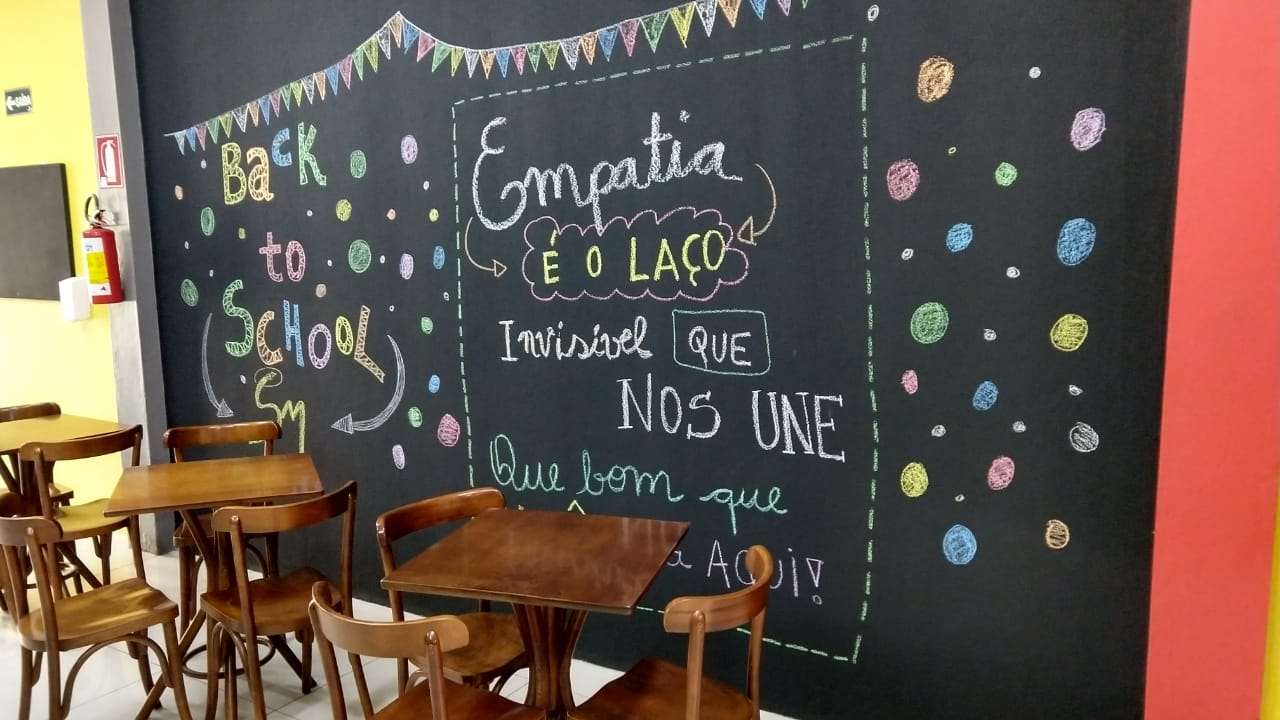 SAÍDA
Back
to
School
Em
Empatia
É O LAÇO
Invisível QUE
NOS UNE
Que bom que
AQUI!